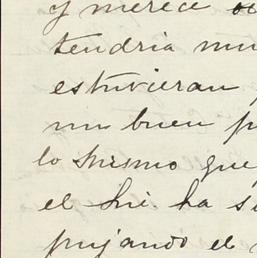 y merece
tendria mu
estuvieran
un buen p
lo mismo que
el Sñr. ha s
pujando el